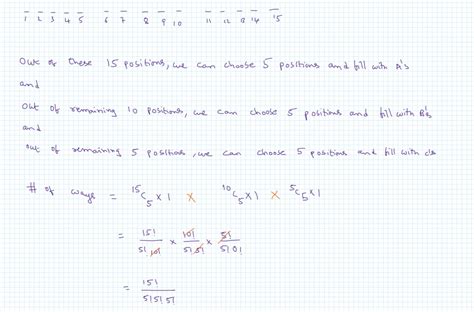 1 2 3 4 5 6 7 8 9 10 11 12 13 14 15
Out of these 15 positions, we can choose 5 positions and fill with A's
and
Out of remaining 10 positions, we can choose 5 positions and fill with B's
and
out of remaining 5 positions, we can choose 5 positions and fill with c's
# of ways = ¹⁵C₅ × 1 × ¹⁰C₅ × 1 × ⁵C₅ × 1
= 15!/(5! 10!) × 10!/(5! 5!) × 5!/(5! 0!)
= 15!/(5! 5! 5!)